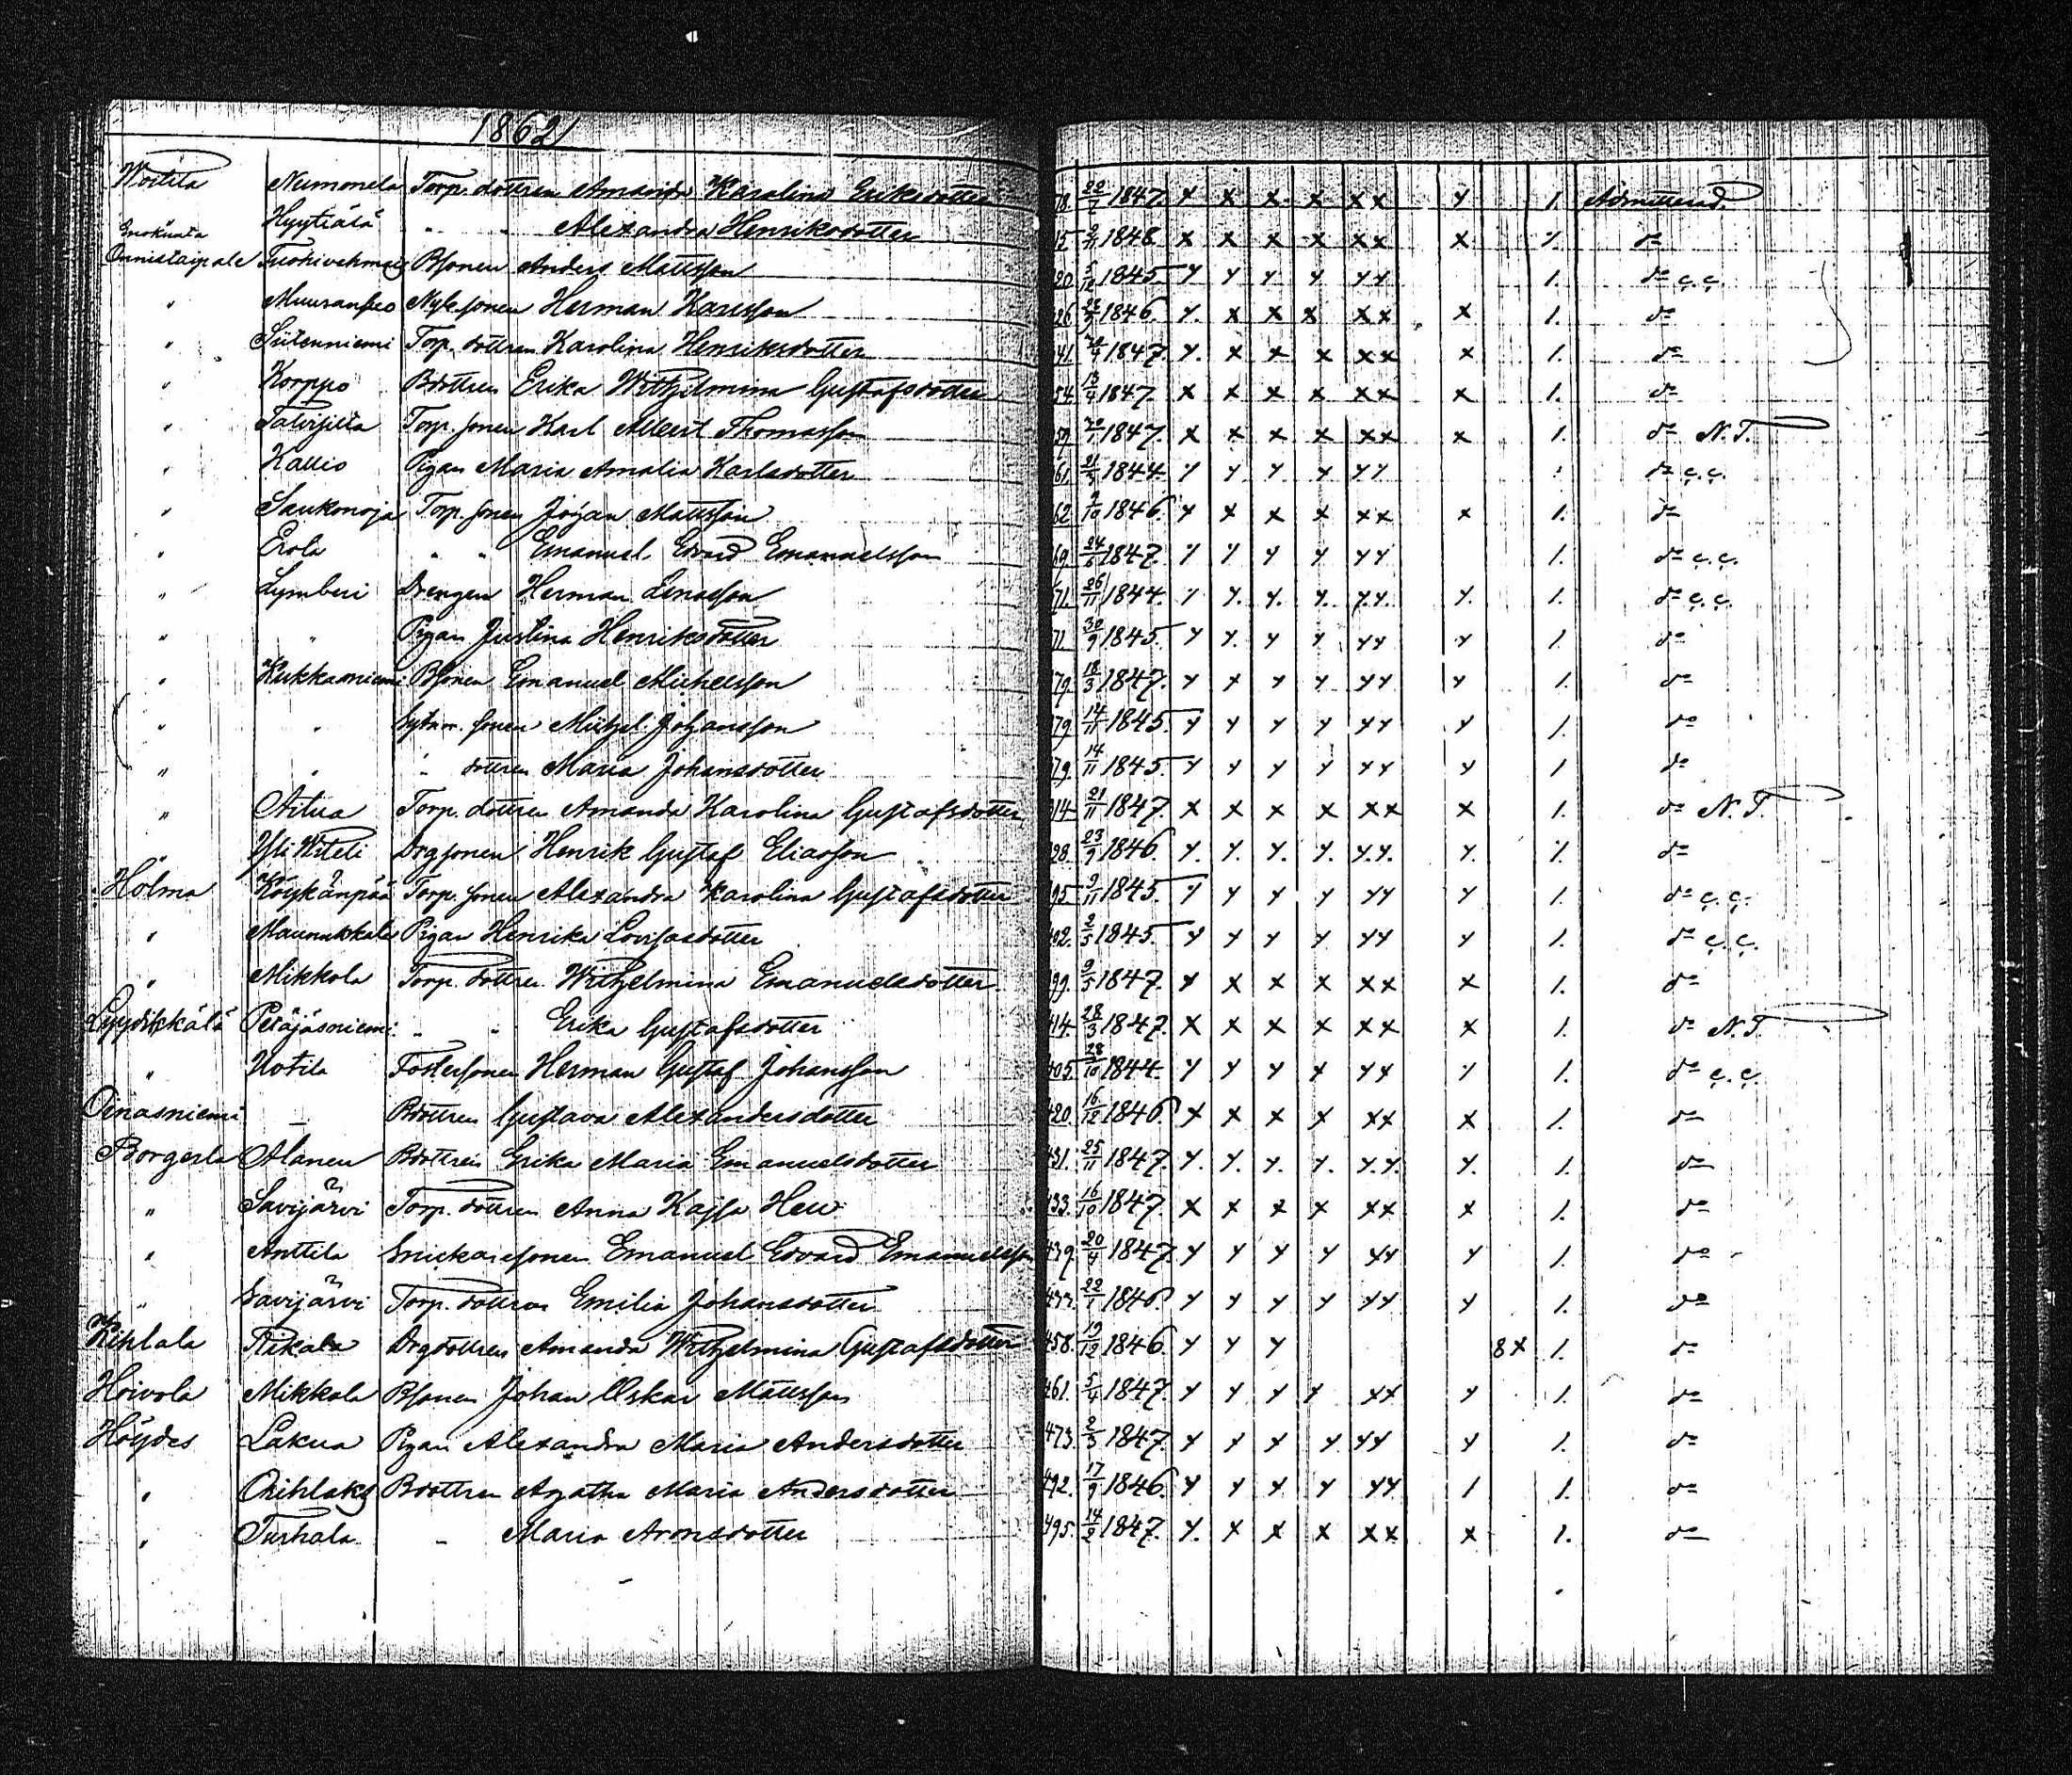 1862
Woitila Neumonela Torp. dottren Amanda Karolina Eriksdotter 78. 22/2 1847. x x x x xx x 1. Admitterad.
Enokunta Hyytiälä " " Alexandra Henriksdotter 15. 2/11 1848 x x x x xx x 1. do
Onnistaipale Tuohivehmas Bsonen Anders Mattsson 20. 5/12 1845 y y y y yy 1. do c. c.
" Muuranpeo Nyb. sonen Herman Karlsson 26. 1846. y. x x x xx x 1. do
" Siitenniemi Torp. dottren Karolina Henriksdotter 41. 1847. y. x x x xx x 1. do
" Korppo Bdottren Erika Wilhelmina Gustafsdotter 54. 13/4 1847 x x x x xx x 1. do
" Talvisilta Torp. sonen Karl Albert Thomasson 59. 1847. x x x x xx x 1. do N. T.
" Kallio Pigan Maria Amalia Karlsdotter 61. 1844. y y y y yy do c. c.
" Saukonoja Torp. sonen Johan Mattsson 62. 1846. y x x x xx x 1. do
" Erola " " Emanuel Edvard Emanuelsson 69. 24/6 1847. y y y y yy 1. do c. c.
" Lymberi Drengen Herman Enosson 71. 26/11 1844. y y. y. y. y.y. y. 1. do c. c.
" " Pigan Justina Henriksdotter 71. 30/9 1845. y y. y y yy y 1. do
" Kukkaoniemi Bsonen Emanuel Michelsson 79. 18/3 1847. y x y y yy y 1. do
" " Sytnw. sonen Michel Johansson 79. 14/11 1845. y y y y yy y 1. do
" " " dottren Maria Johansdotter 79. 14/11 1845. y y y y yy y 1 do
" Aitua Torp. dottren Amanda Karolina Gustafsdotter 14. 21/11 1847. x x x x xx x 1. do N. T.
" Yli Witeli Drgsonen Henrik Gustaf Eliasson 28. 23/9 1846. y. y. y. y. y.y. y. 1. do
Holma Köykänpää Torp. sonen Alexandra Karolina Gustafsdotter 95. 9/11 1845 y y y y yy y 1. do c. c.
" Maunukkala Pigan Henrika Lovisasdotter 402. 2/5 1845. y y y y yy y 1. do c. c.
" Mikkola Torp. dottren Wilhelmina Emanuelsdotter 99. 9/5 1847. x x x x xx x 1. do
Lyydikkälä Petäjäsniemi " " Erika Gustafsdotter 414. 28/3 1847. x x x x xx x 1. do N. T.
" Uotila Fostersonen Herman Gustaf Johansson 405. 28/10 1844. y y y y yy y 1. do c. c.
Oinasniemi — Bdottren Gustava Alexandersdotter 420. 16/12 1846. x x x x xx x 1. do
Borgerla Alanen Bdottren Erika Maria Emanuelsdotter 431. 25/11 1847. y. y. y. y. y.y. y. 1. do
" Savijärvi Torp. dottren Anna Kajsa Hen. 433. 16/10 1847. x x x x xx x 1. do
" Anttila Snickaresonen Emanuel Edvard Emanuelsson 439. 20/4 1847. y y y y yy y 1. do
" Savijärvi Torp. dottren Emilia Johansdotter 433. 22/1 1846. y y y y yy y 1. do
Kihlala Rikala Drgdottren Amanda Wilhelmina Gustafsdotter 458. 19/12 1846. y y y 8 x 1. do
Hoivola Mikkola Bsonen Johan Oskar Mattsson 461. 5/4 1847. y y y y xx y 1. do
Höydes Lakua Pigan Alexandra Maria Andersdotter 473. 2/3 1847. y y x y yy y 1. do
" Orihlaks Bdottren Agatha Maria Andersdotter 492. 17/9 1846. y y y y yy 1 1. do
" Turhala " Maria Aronsdotter 495. 14/2 1847. y. x x x xx x 1. do